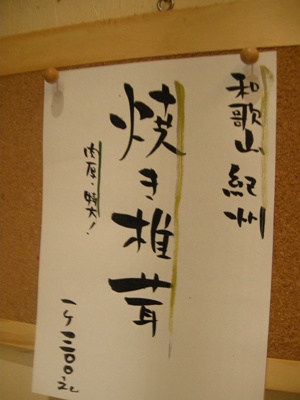 和歌山紀州
焼き椎茸
肉厚、特大!
一ケ三〇〇えん